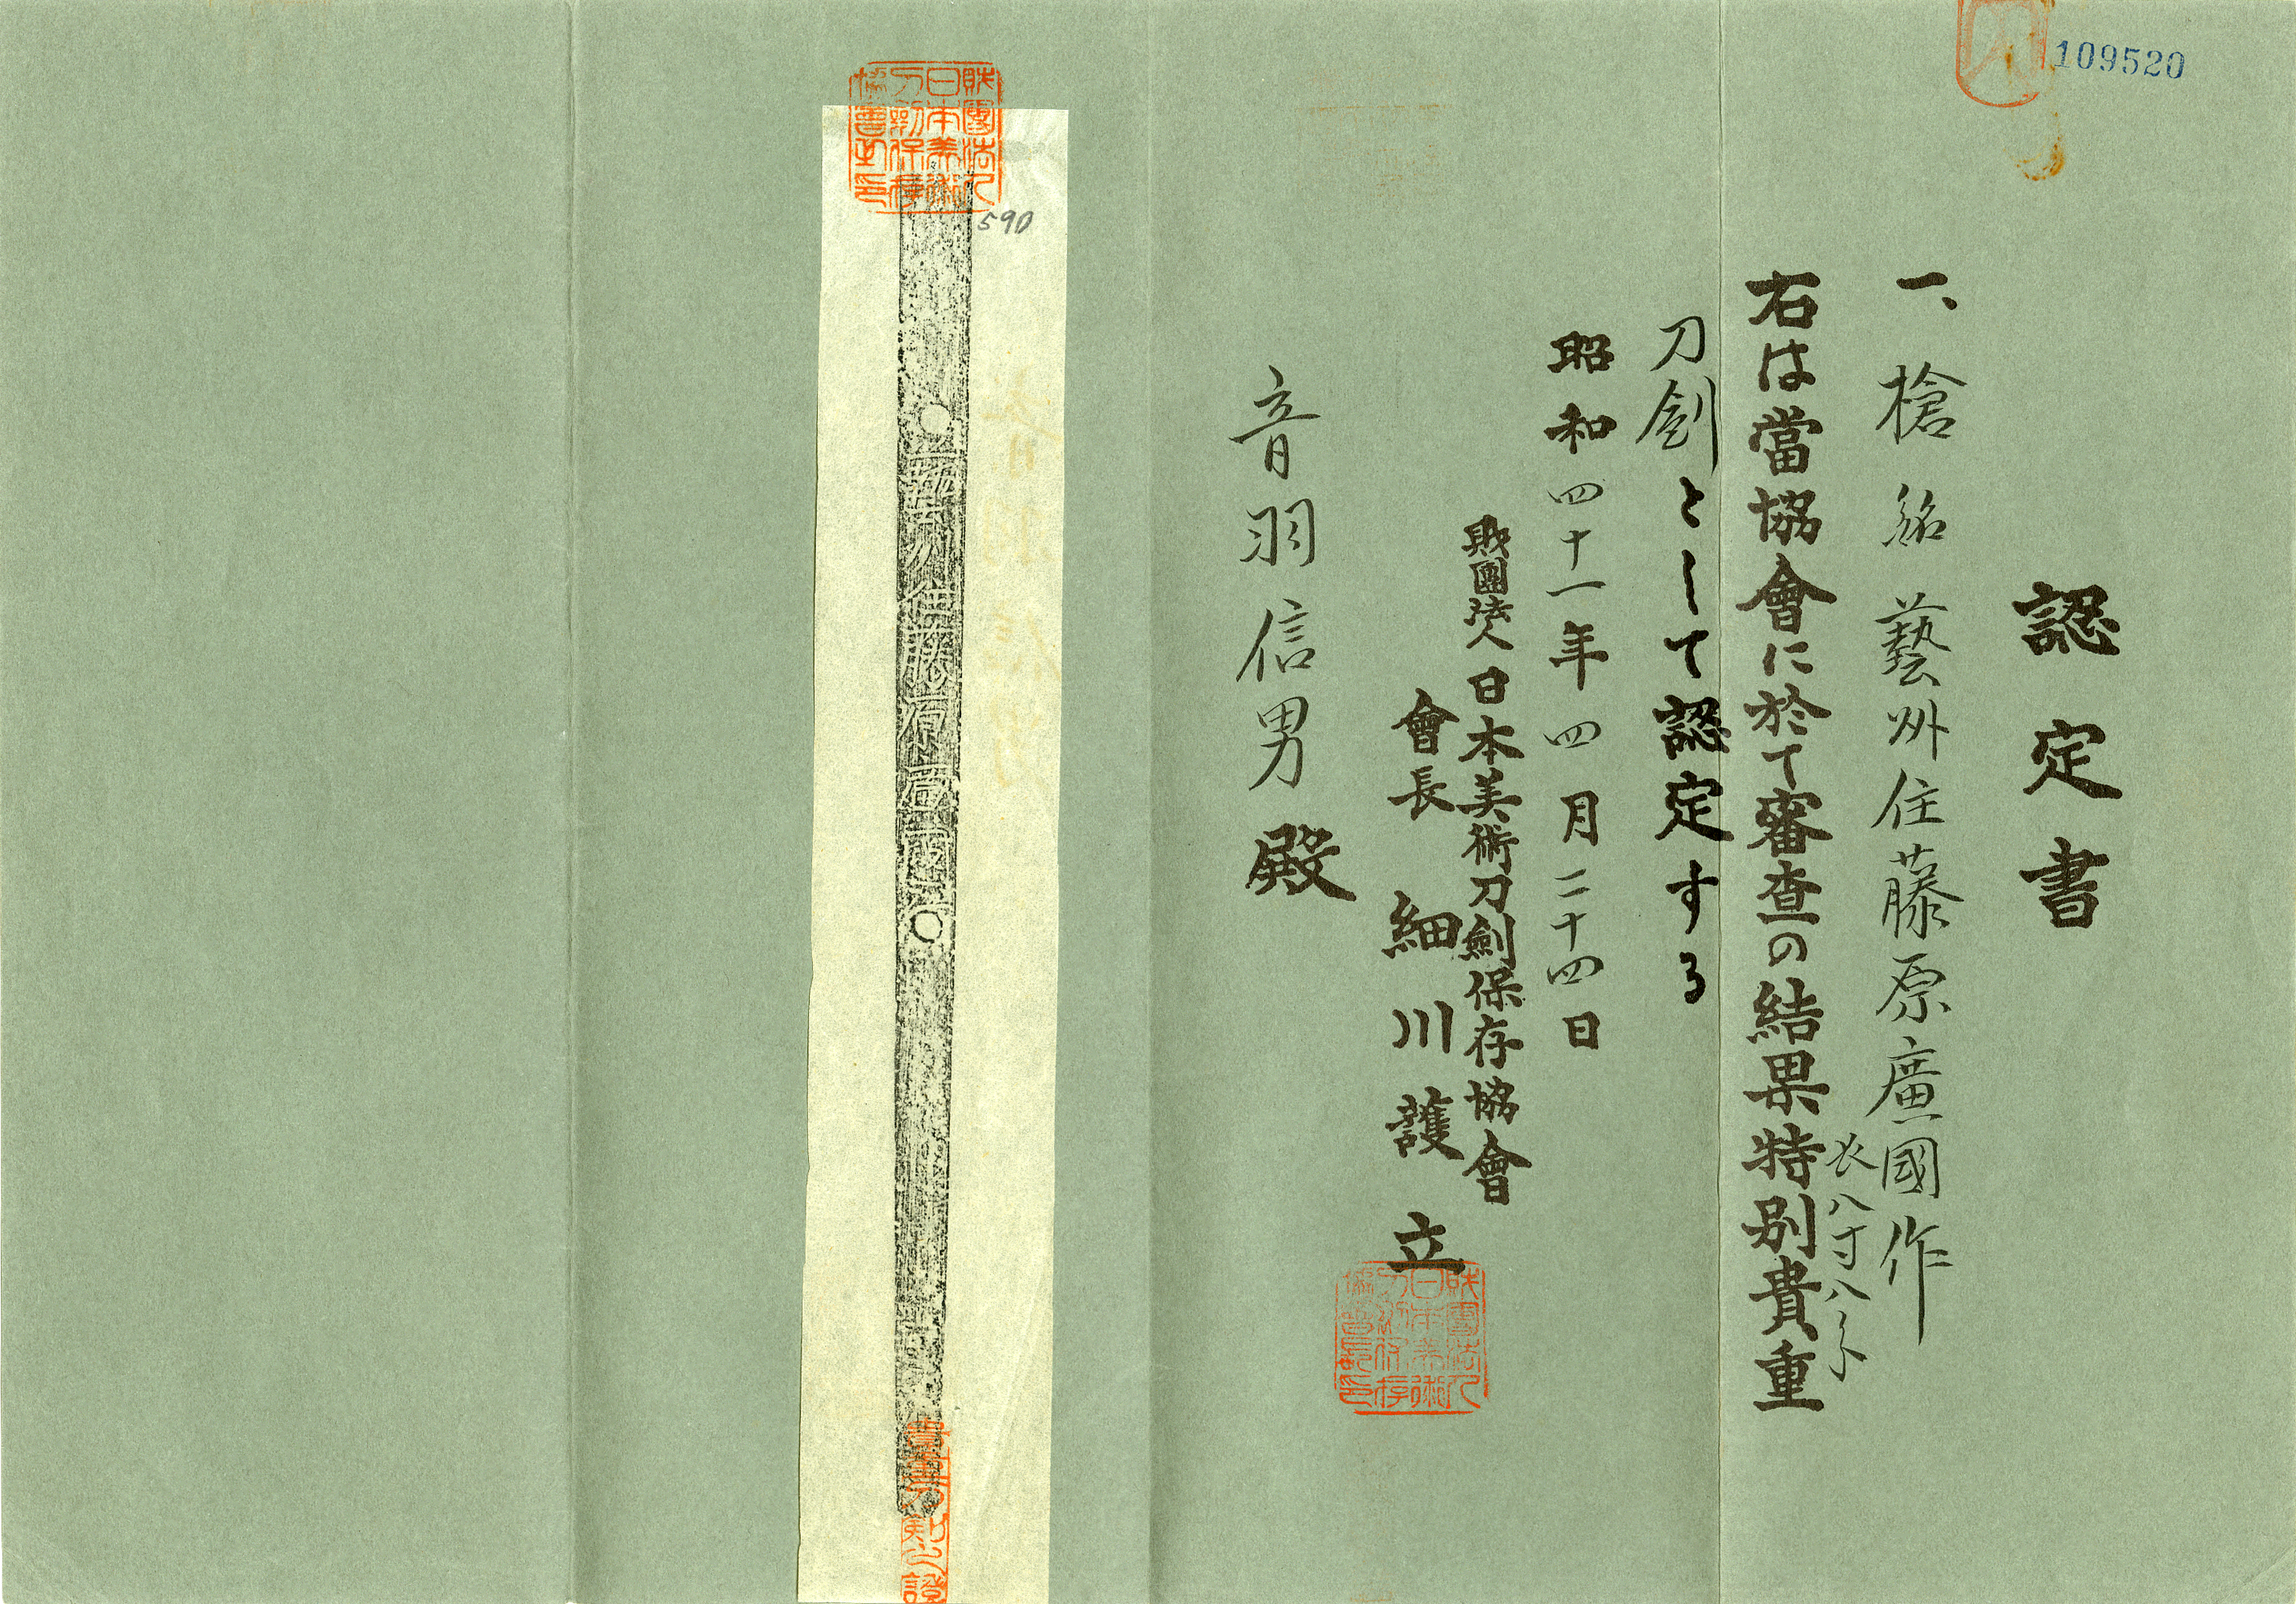 109520
認定書
一、槍 銘 藝州住藤原廣國作
長八寸八分
右は當協會に於て審査の結果特別貴重
刀劍として認定する
昭和四十一年四月二十四日
財團法人 日本美術刀劍保存協會
會長 細川護立
財團法人日本美術刀剣保存協會長印
音羽信男殿
財團法人日本美術刀剣保存協會之印
590
藝州住藤原廣國作
貴重刀剣之證